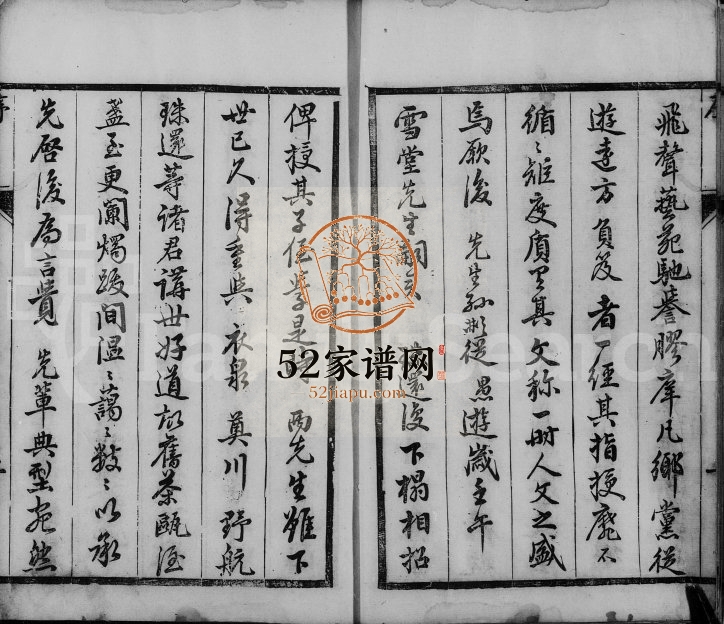 飛聲藝苑馳譽膠庠凡鄉黨從
遊遠方負笈者一經其指授靡不
循〻雅度質有其文称一時人文之盛
焉厥後 先生孫彬從愚遊歲壬午
雪堂先生嗣 還後下榻相招
俾授其子侄學是 兩先生雖下
世已久得重與 衣泉 莫川 野航
珠還等諸君講世好道故舊茶甌酒
盞至更闌燭跋间温〻藹〻敎〻以承
先啓後爲言貴 先輩典型宛然
序
52家谱网
52jiapu.com